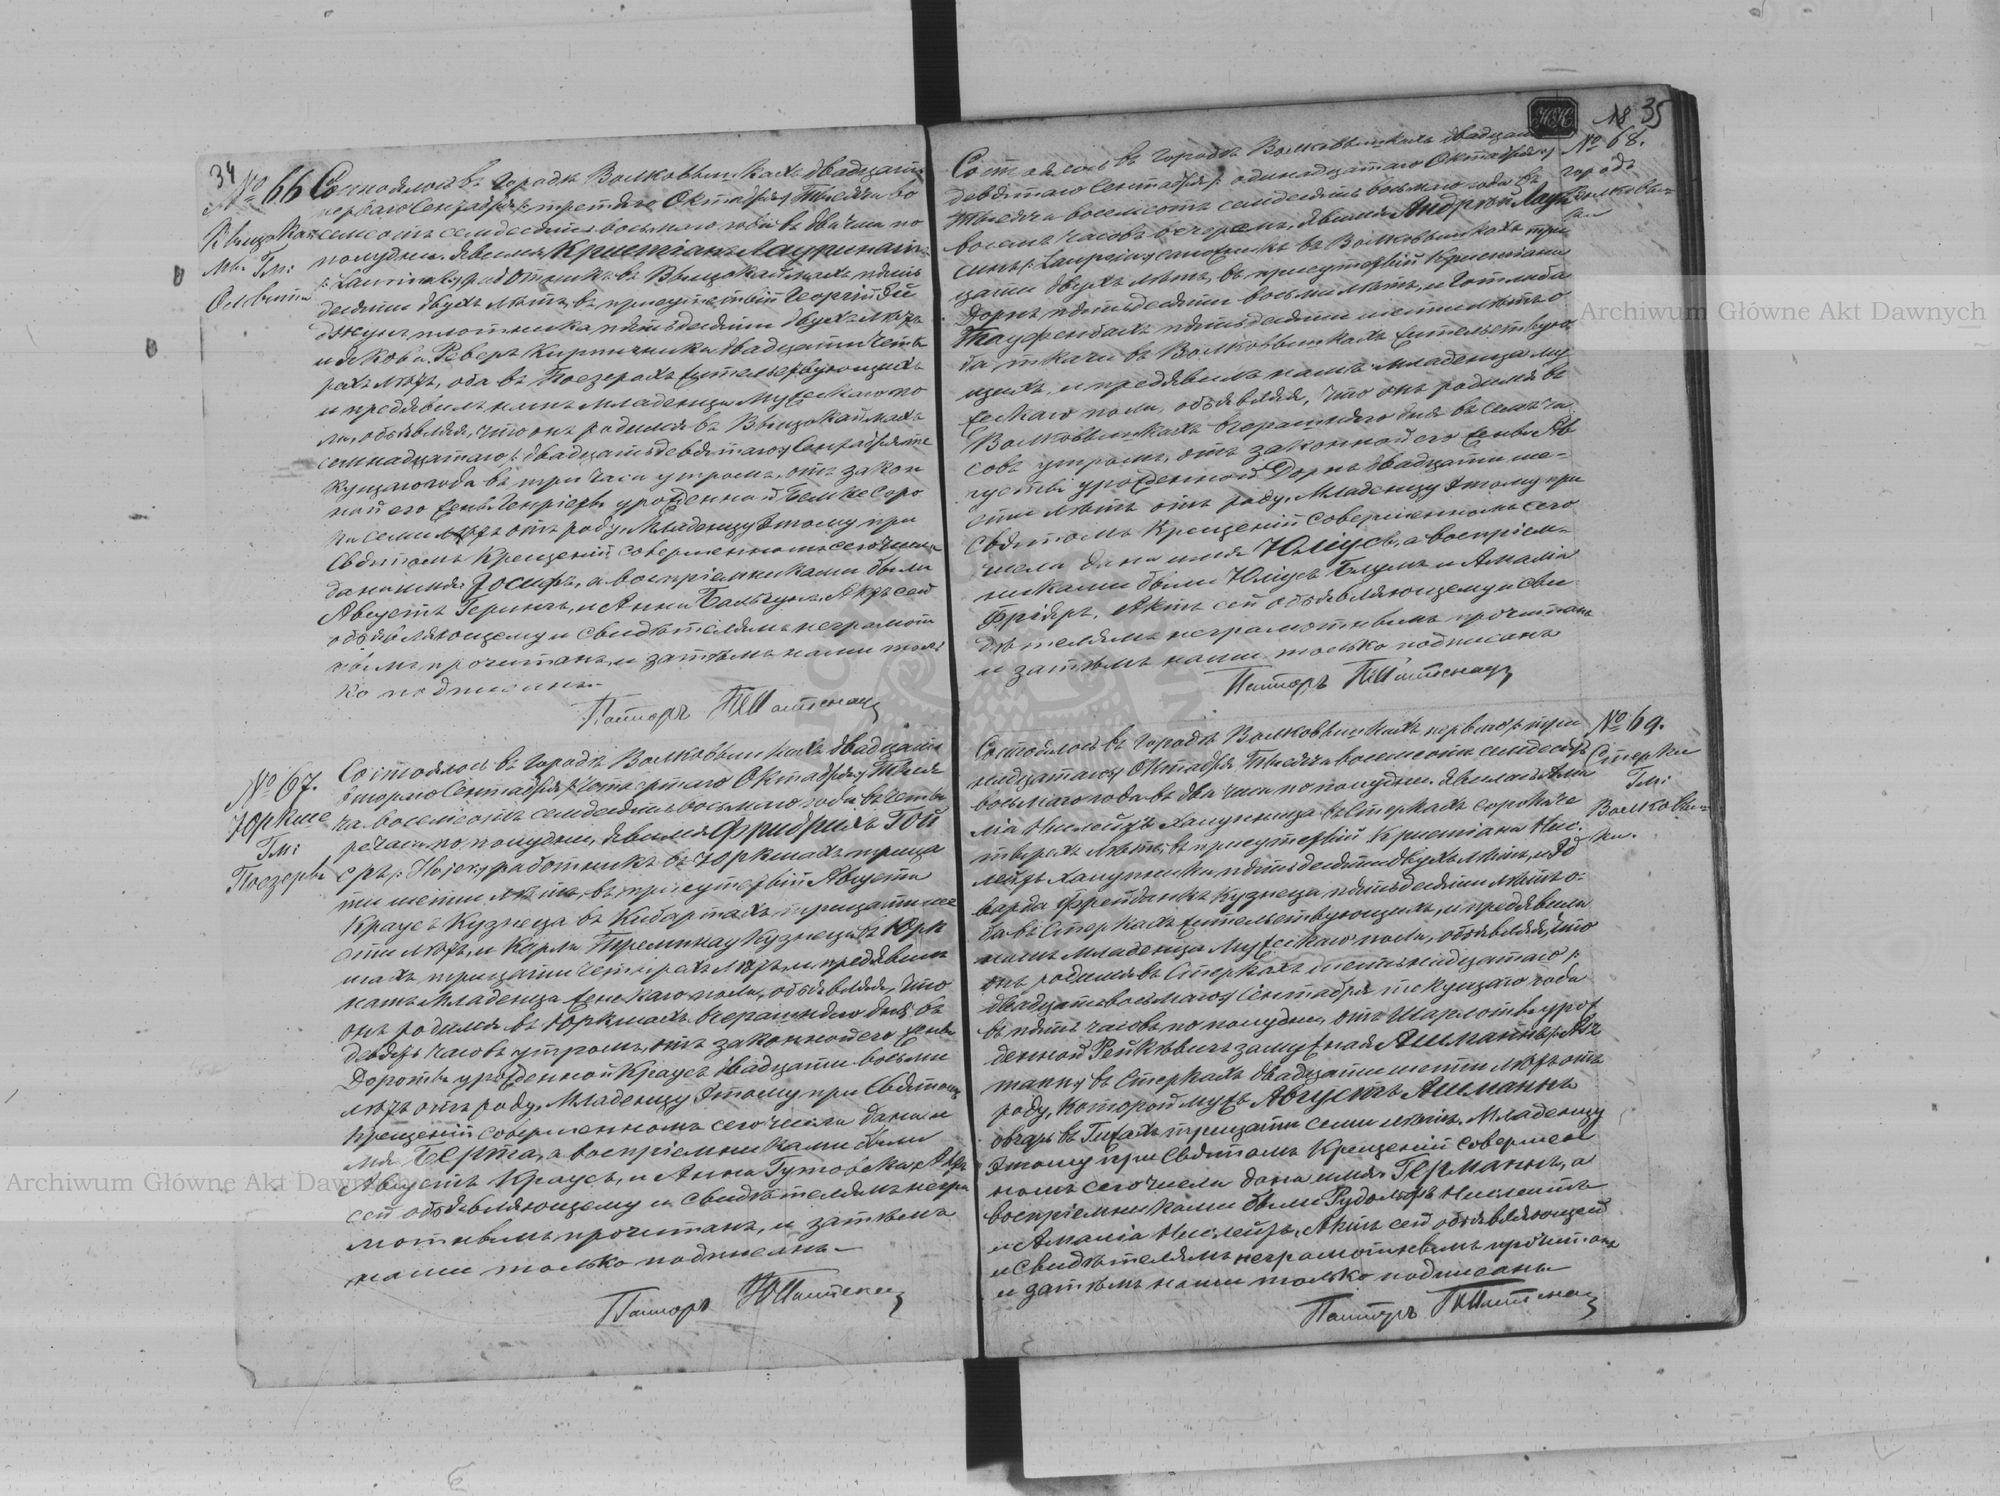 34
№ 66
Состоялось въ городѣ Волковышкахъ двадцать
перваго Сентября /: третьяго Октября :/ тысяча во
семьсотъ семьдесятъ восьмаго года въ два часа по
полудни. Явился Христіанъ Лауринатъ
работникъ въ
десяти двухъ лѣтъ, въ присутствіи Георгія
плотника пятьдесяти двухъ лѣтъ
и Якова Реверъ Кирпичника двадцати четы
рехъ лѣтъ, оба въ Поезерахъ жительствующихъ
и предъявилъ намъ младенца мужескаго по
ла, объявляя, что онъ родился въ
семнадцатаго /: двадцать девятаго :/ Сентября те
кущаго года въ три часа утромъ, отъ закон
ной его жены Генріеты урожденной Бемке соро
ка семи лѣтъ отъ роду. Младенцу этому при
Святомъ Крещеніи совершенномъ сего числа
дано имя Іосифъ, а воспріемниками были
Августъ Герингъ, и Анна Актъ сей
объявляющему и свидѣтелямъ неграмот
нымъ прочитанъ, и затѣмъ нами толь
ко подписанъ.
Пасторъ
№ 67.
Юркше
Гм:
Поезеры
Состоялось въ городѣ Волковышкахъ двадцать
втораго Сентября /: четвертаго Октября :/ тыся
ча восемсотъ семдесятъ восьмаго года въ четы
ре часа по полудни, явился Фридрихъ Гой
еръ /: Hojer :/ работникъ въ Юркшахъ трица
ти шести лѣтъ, въ присутствіи Августа
Краусъ Кузнеца въ Кибартахъ трицати ше
сти лѣтъ, и Карла Кузнеца въ Юрк
шахъ трицати четырехъ лѣтъ, и предъявилъ
намъ младенца женскаго пола, объявляя, что
онъ родился въ Юркшахъ вчерашняго дня въ
девять часовъ утромъ, отъ законной его жены
Доротеи урожденной Краусъ двадцати восьми
лѣтъ отъ роду. Младенцу этому при Святомъ
Крещеніи совершенномъ сего числа дано и
мя Берта, а воспріемниками были
Августъ Краусъ, и Анна Гутовска, Актъ
сей объявляющему и свидѣтелямъ негра
мотнымъ прочитанъ, и затѣмъ
нами только подписанъ.
Пасторъ
18 35
№ 68.
городъ
Волковы-
шки
Состоялось въ городѣ Волковышкахъ двадцать
девятаго Сентября /: одинадцатаго Октября :/
тысяча восемсотъ семдесятъ восьмаго года въ
восемь часовъ вечеромъ, явился Андрей
въ Волковышкахъ три
цати двухъ лѣтъ, въ присутствіи Христіана
Дорнъ пятьдесяти восьми лѣтъ, и Готлиба
пятьдесяти шести лѣтъ о
ба ткачи въ Волковышкахъ жительствую
щихъ, и предъявилъ намъ младенца му
жескаго пола, объявляя, что онъ родился въ
Волковышкахъ вчерашняго дня въ семь ча
совъ утромъ, отъ законной его жены Ав
густы урожденной Дорнъ двадцати ше-
сти лѣтъ отъ роду. Младенцу этому при
Святомъ Крещеніи совершенномъ сего
числа дано имя Юліусъ, а воспріем-
никами были Юліусъ Блумъ и Амалія
Актъ сей объявляющему и сви
дѣтелямъ неграмотнымъ прочитанъ
и затѣмъ нами только подписанъ
Пасторъ
№ 69.
Стерки
Гм:
Волковы-
шки.
Состоялось въ городѣ Волковышкахъ перваго /: три
надцатаго :/ Октября тысяча восемсотъ семдесятъ
восьмаго года въ два часа по полудни. Явилась Ама
лія Нислейтъ халупница въ Стеркахъ сорока че
тырехъ лѣтъ, въ присутствіи Христіана Нис-
лейтъ халупника пятьдесяти двухъ лѣтъ, и Эд
варда Фрейданкъ Кузнеца пятьдесяти лѣтъ о-
ба въ Стеркахъ жительствующихъ, и предъявила
намъ младенца мужескаго пола, объявляя, что
онъ родился въ Стеркахъ шестьнадцатаго /:
двадцать восьмаго :/ Сентября текущаго года
въ пять часовъ по полудни, отъ Шарлотты урож
денной замужная Ашманнъ
въ Стеркахъ двадцати шести лѣтъ отъ
роду, которой мужъ Августъ Ашманнъ
овчаръ въ трицати семи лѣтъ. Младенцу
этому при Святомъ Крещеніи совершен
номъ сего числа дано имя Германнъ, а
воспріемниками были Рудольфъ Нислейтъ
и Амалія Нислейтъ, Актъ сей объявляющей
и свидѣтелямъ неграмотнымъ прочитанъ
и затѣмъ нами только подписанъ
Пасторъ
Archiwum Główne Akt Dawnych
Archiwum Główne Akt Dawnych